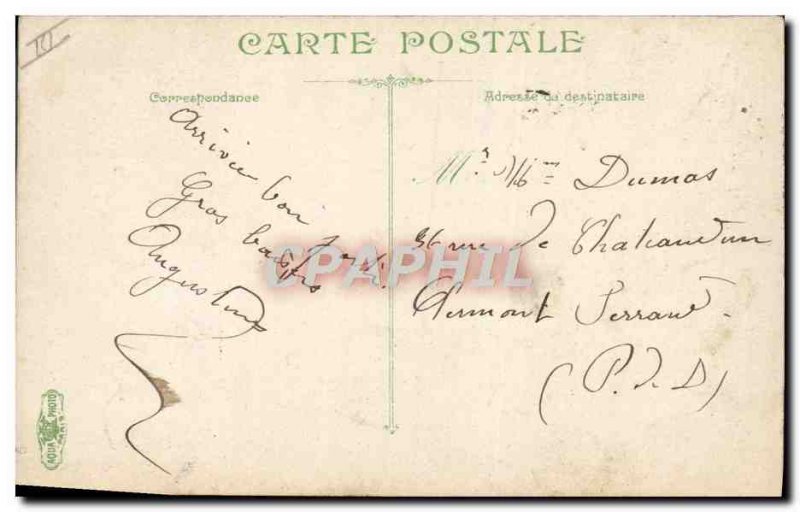 CARTE POSTALE
Correspondance
Arrivée bon port
Gros baisers
Augustine
Adresse du destinataire
Mr Mme Dumas
36 rue de Chateaudun
Clermont Ferrand
(P. d. D)
CPAPHIL
AQUA PHOTO
PARIS